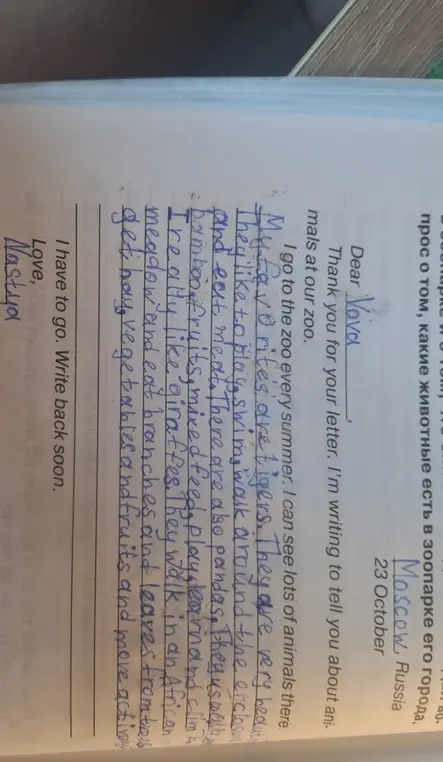 прос о том, какие животные есть в зоопарке его города.
Moscow, Russia
23 October
Dear Vova,
Thank you for your letter. I'm writing to tell you about ani-
mals at our zoo.
I go to the zoo every summer. I can see lots of animals there
My favorites are tigers. They are very
They like to play, swim, walk around the
and eat meat. There are also pandas. They
bamboo, fruits, mixed feed, play, learn and climb
I really like giraffes. They walk in an African
meadow and eat branches and leaves from
get hay, vegetables and fruits and move
I have to go. Write back soon.
Love,
Nastya